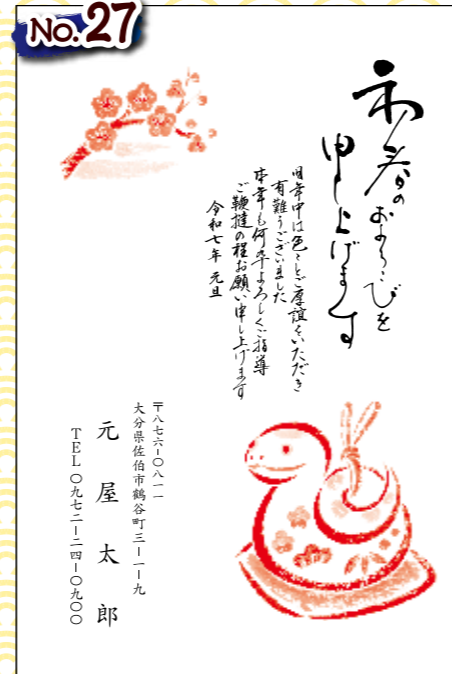 No.27
初春のおよろこびを
申し上げます
旧年中は色々とご厚誼をいただき
有難うございました
本年も何卒よろしくご指導
ご鞭撻の程お願い申し上げます
令和七年 元旦
〒八七六-〇八一一
大分県佐伯市鶴谷町三-一-九
元屋太郎
TEL 〇九七二-二四-〇九〇〇